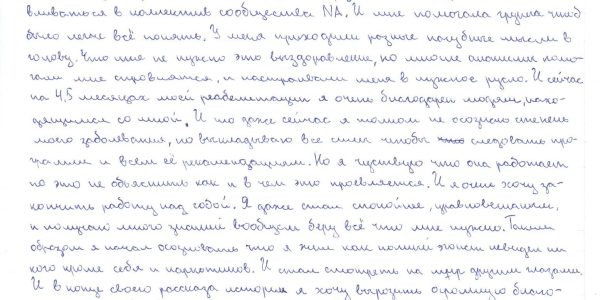 вливаться в коллектив сообщества NA. И мне помогала группа чтоб
было легче всё понять. У меня приходили разные пагубные мысли в
голову. Что мне не нужно это выздоравление, но многие анонимные помо-
гали мне справляится, и настраивали меня в нужное русло. И сейчас
на 4,5 месяцах моей реабелетации я очень благодарен людям, нахо-
дящимися со мной. И что даже сейчас я полном не осознаю степень
моего заболевания, но выкладываю все силы чтобы следовать про-
грамми и всем её рекомендациям. Но я чувствую что она работает
но это не объяснить как и в чём это проевляется. И я очень хочу за-
кончить работу над собой. Я даже стал спокойнее, уравновешанным,
и получаю много знаний вообщем беру всё что мне нужно. Таким
образом я начал осозновать что я жил как полный эгоист невидел ни
кого кроме себя и наркотиков. И стал смотреть на мир другими глазами.
И в конце своего рассказа история я хочу выразить огромную благо-